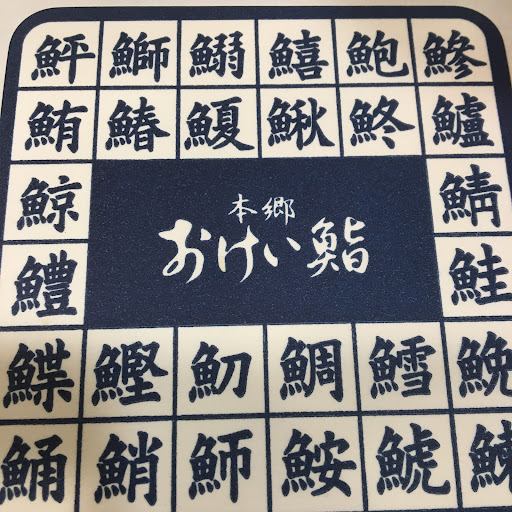 鮃 鰤 鰯 鱚 鮑 鯵
鮪 鰆 鰒 鰍 鮗 鱸
鯨 鯖
本郷
おけい鮨
鱧 鮭
鰈 鰹 魛 鯛 鱈 鮸
鯒 鮹 鰤 鮟 鯱 鰊